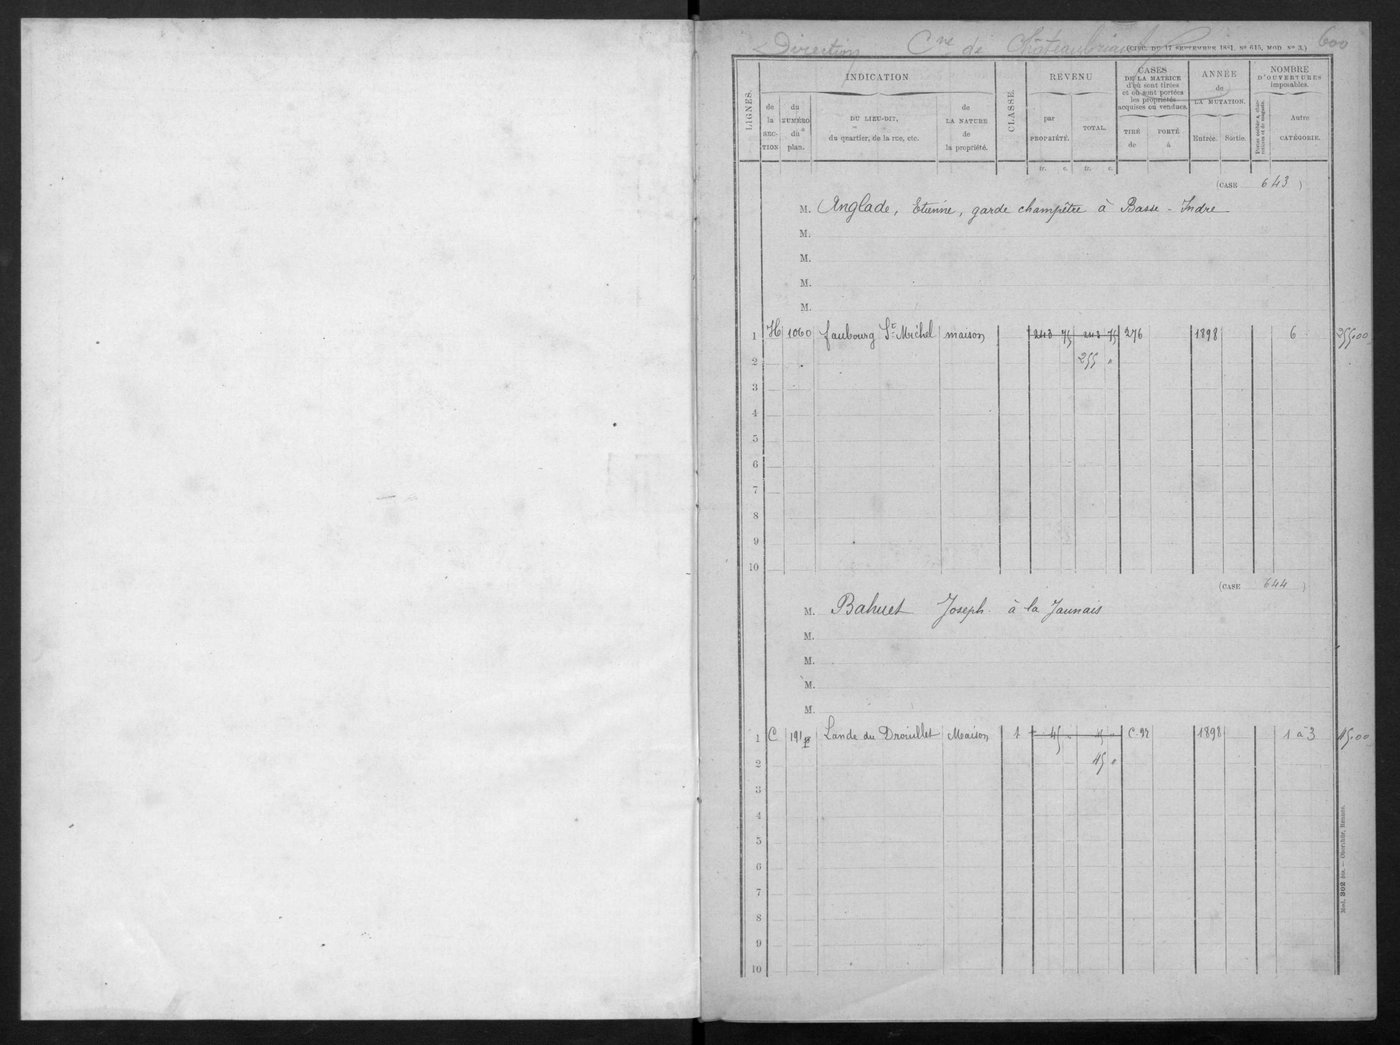 Direction Cne de Châteaubriant
(CIRC. DU 17 SEPTEMBRE 1881, N° 615, MOD. N° 3.)
600
LIGNES.
INDICATION
de la SECTION
du NUMÉRO du plan.
DU LIEU-DIT, du quartier, de la rue, etc.
de LA NATURE de la propriété.
CLASSE.
REVENU
par PROPRIÉTÉ.
TOTAL.
CASES DE LA MATRICE d'où sont tirées et où sont portées les propriétés acquises ou vendues.
TIRÉ de
PORTÉ à
ANNÉE de LA MUTATION.
Entrée.
Sortie.
NOMBRE D'OUVERTURES imposables.
Autre CATÉGORIE.
fr. c. fr. c.
(CASE 643 )
M. Anglade, Etienne, garde champêtre à Basse-Indre
M.
M.
M.
M.
1 H 1060 faubourg St Michel maison 243 75 243 75 276 1898 6 255.00
2 255 "
3
4
5
6
7
8
9
10
(CASE 644 )
M. Bahuet Joseph à la Jaunais
M.
M.
M.
M.
1 C 191 Lande du Drouillet Maison 1 45 " 45 " C. 92 1898 1 à 3 45.00
2 45 "
3
4
5
6
7
8
9
10
Mod. 302 bis. — Oberthür, Rennes.